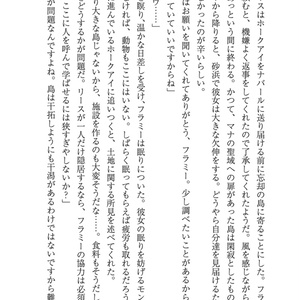 ースはホークアイをナバールに送り届ける前に忘却の島に寄ることにした。フラ
むと、機嫌よく返事をしてくれたので了承してくれたようだ。風を感じながら
っという間に終わる。かつて、マナの聖域への扉があった島は閑寂としたもの
から降りると、砂浜で彼女は大きな欠伸をする。どうやら自分達を見届けるた
かったのが辛いらしい。
はお願いを聞いてくれてありがとう、フラミー。少し調べたいことがあるから
ていいですからね」
ゥ」
眠り、温かな日差しを受け、フラミーは眠りについた。彼女の眠りを妨げるモン
ければ、動物もここにはいない。しばらく眠っても疲労も取れるだろう
進んでいるホークアイに追いつくと、土地に関する所見を述べてくれた。
り大きな島じゃないから、施設を作るのも大変そうだな……。食料もそうだし
どうするかが問題だ。リースが一人だけ隠居するなら、フラミーの協力は必須
ここに人を呼んで学ばせるには狭すぎやしないか？」
が問題なんですよね。島は干拓しようにも干潟があるわけではないですから難